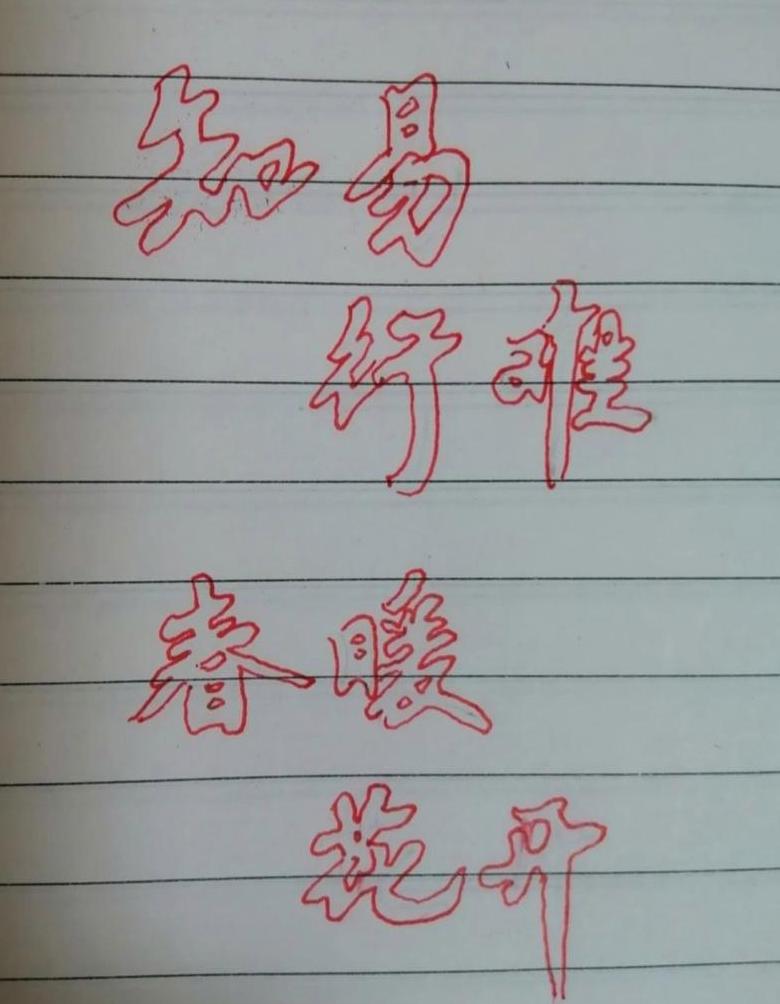 知易
行难
春暖
花开